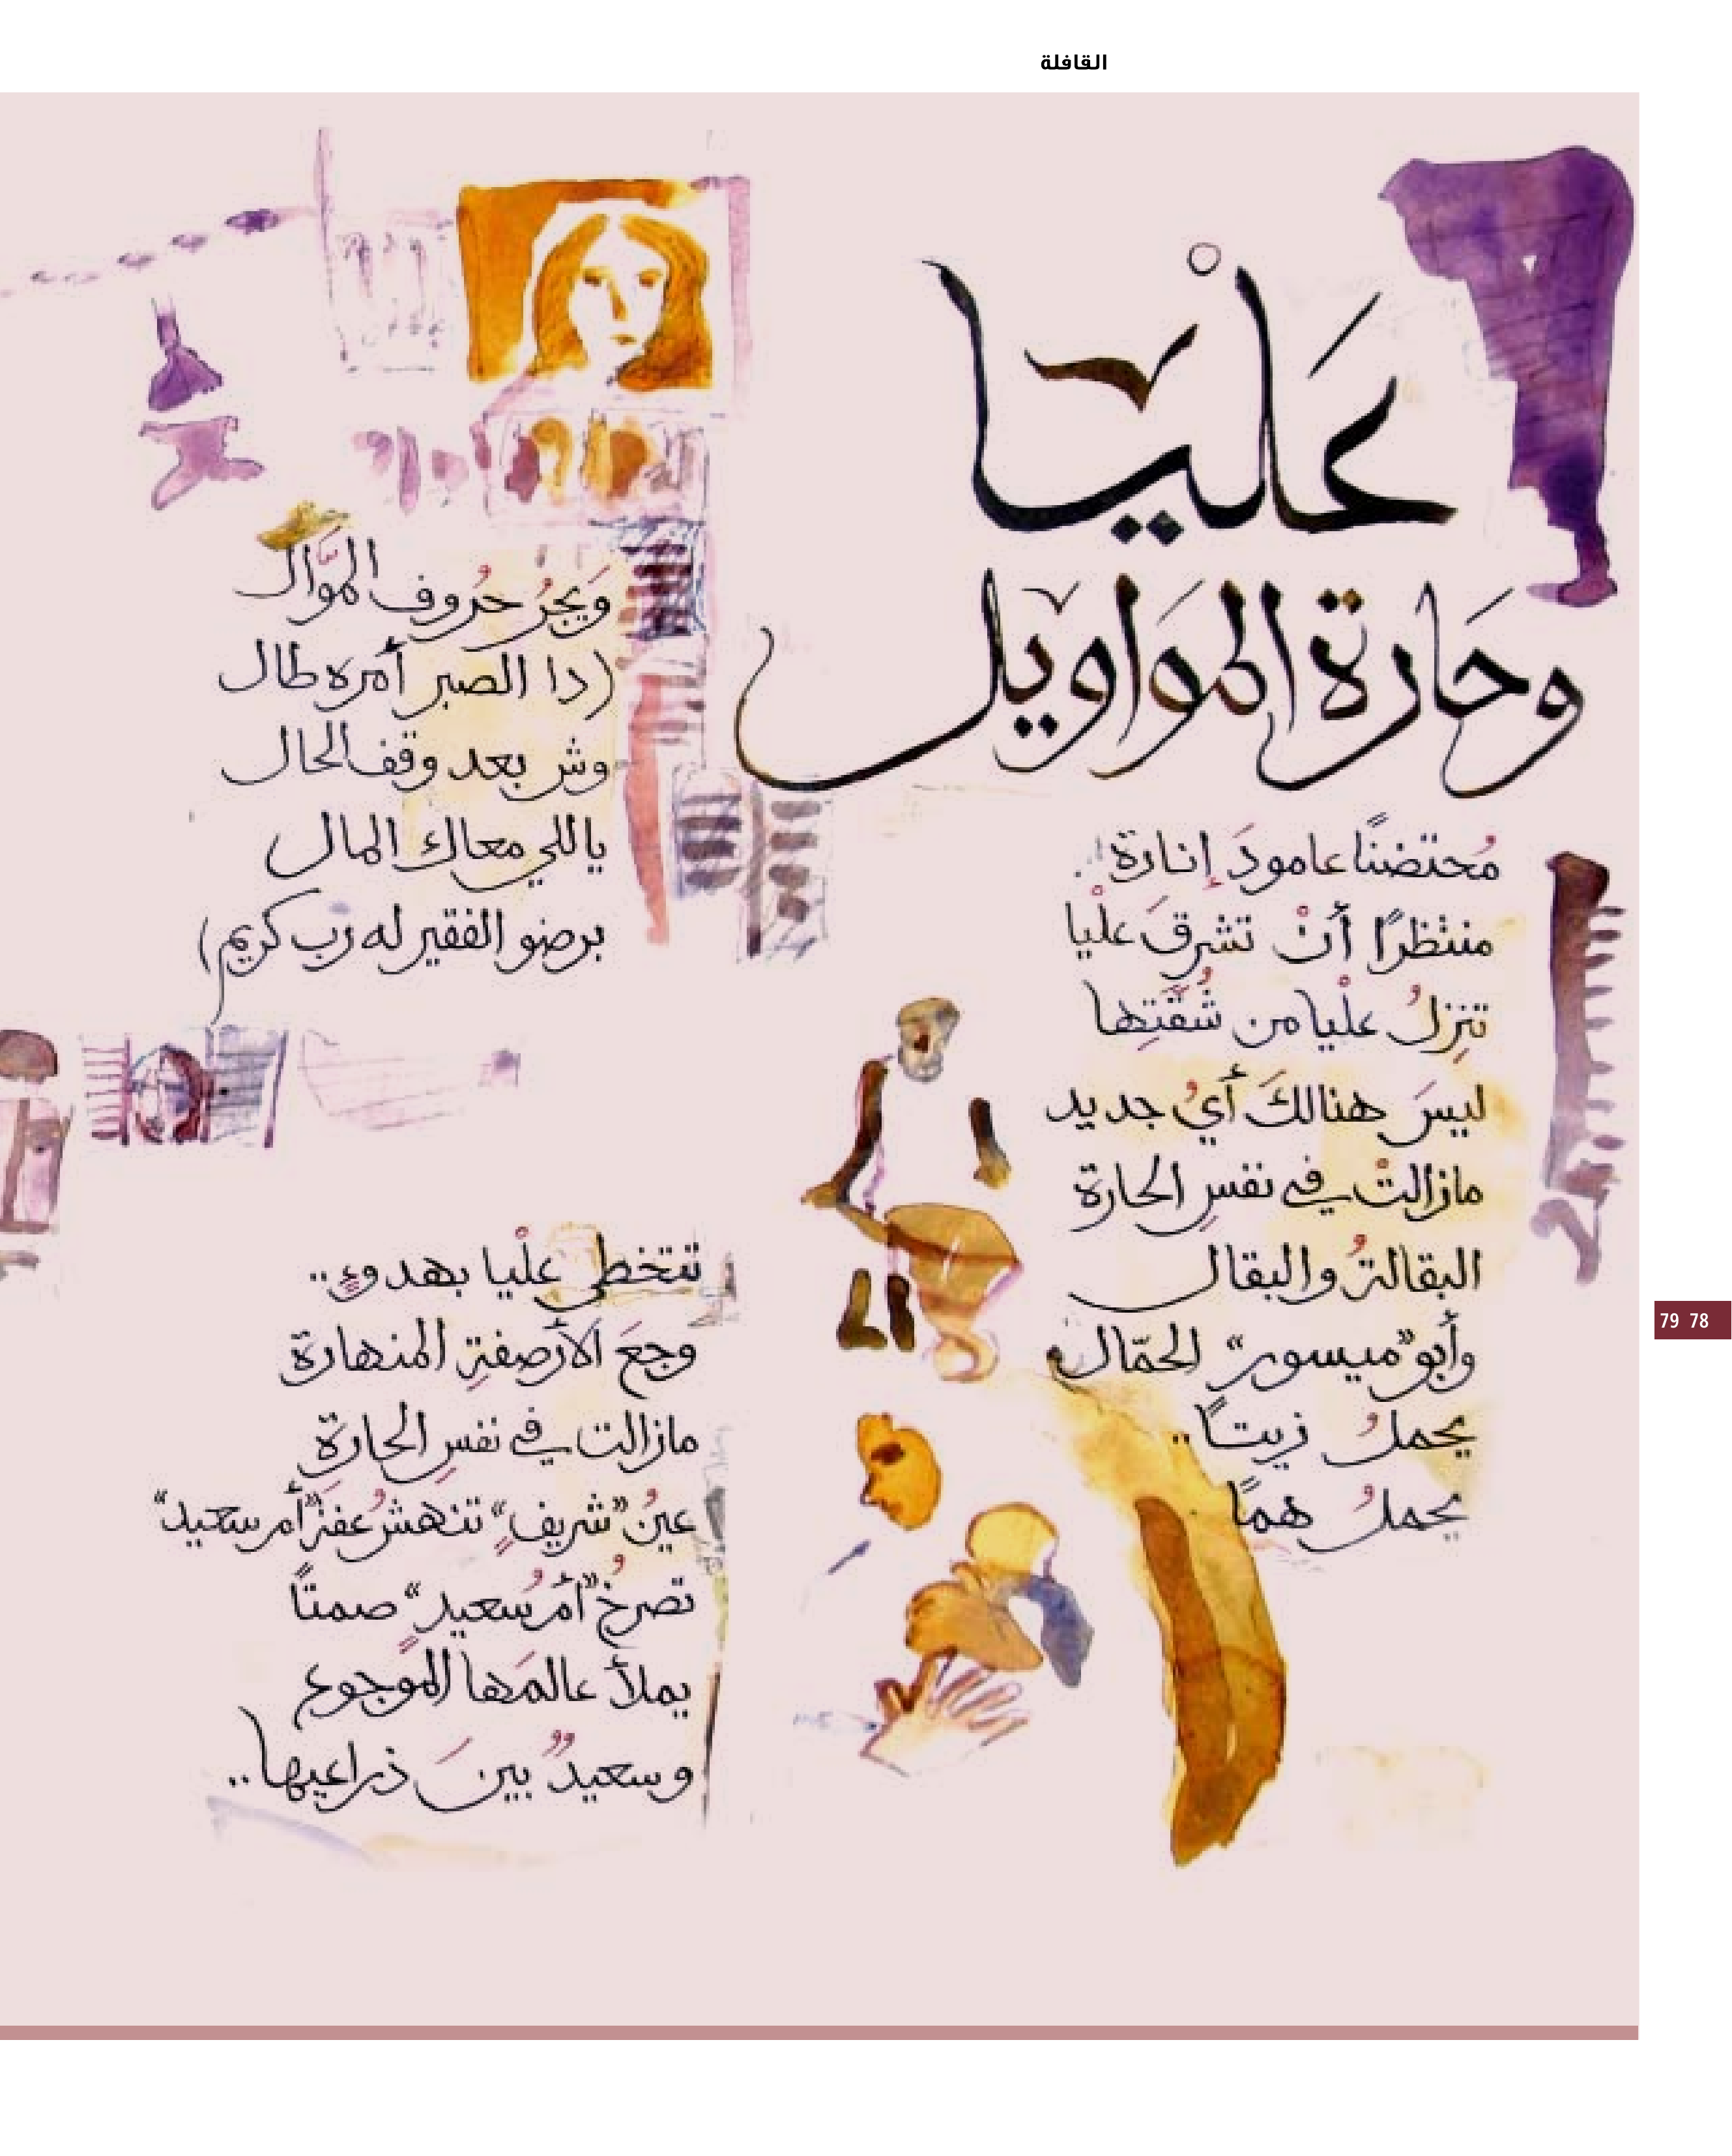 القافلة
عَلْيَا
وحَارة المَوَاويل
مُحتضنًا عامودَ إنارة..
منتظرًا أنْ تشرقَ علْيا
تنزِلُ علْيا من شُقَّتِها
ليسَ هنالكَ أيُ جديد
مازالتْ في نفسِ الحارة
البقالةُ والبقال
وأبو "ميسور" الحمّال
يحملُ زيتًا..
يحملُ همًا
وَيجرُ حُروف الموّال
(دا الصبر أمره طال
وش بعد وقف الحال
ياللي معاك المال
برضو الفقير له رب كريم)
تتخطى علْيا بهدوءٍ..
وجعَ الأرصفةِ المنهارة
مازالت في نفسِ الحارة
عينُ "شريفٍ" تنهشُ عفةَ "أم سعيد"
تصرخُ "أمُ سعيدٍ" صمتًا
يملأ عالمَها الموجوع
وسعيدٌ بينَ ذراعيها..
79 78